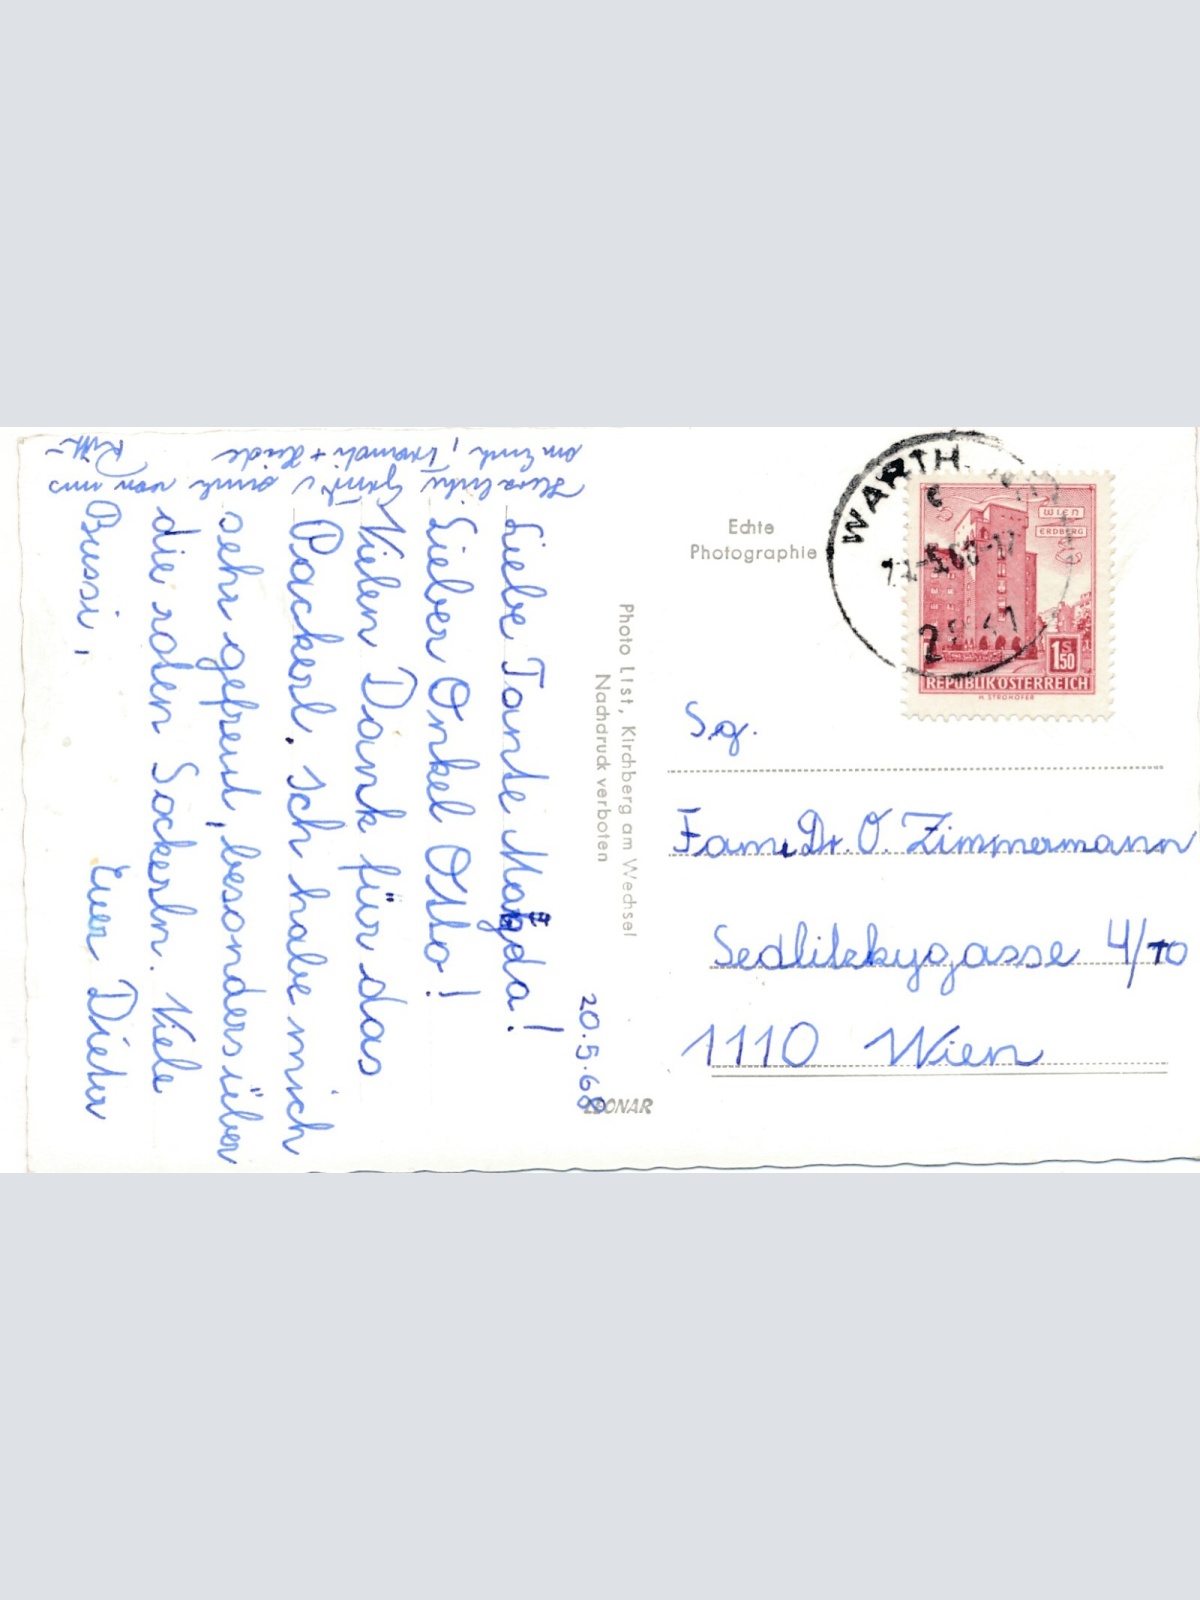 20.5.68
Liebe Tante Magda!
Lieber Onkel Otto!
Vielen Dank für das
Packerl. Ich habe mich
sehr gefreut, besonders über
die roten Sockerln. Viele
Bussi,
Euer Dieter
Herzliche Grüße auch von uns
Echte
Photographie
Photo List, Kirchberg am Wechsel
Nachdruck verboten
LEONAR
WARTH
WIEN
ERDBERG
S
1.50
REPUBLIK ÖSTERREICH
H. STROHOFER
Sg.
Fam. Dr. O. Zimmermann
Sedlitzkygasse 4/10
1110 Wien